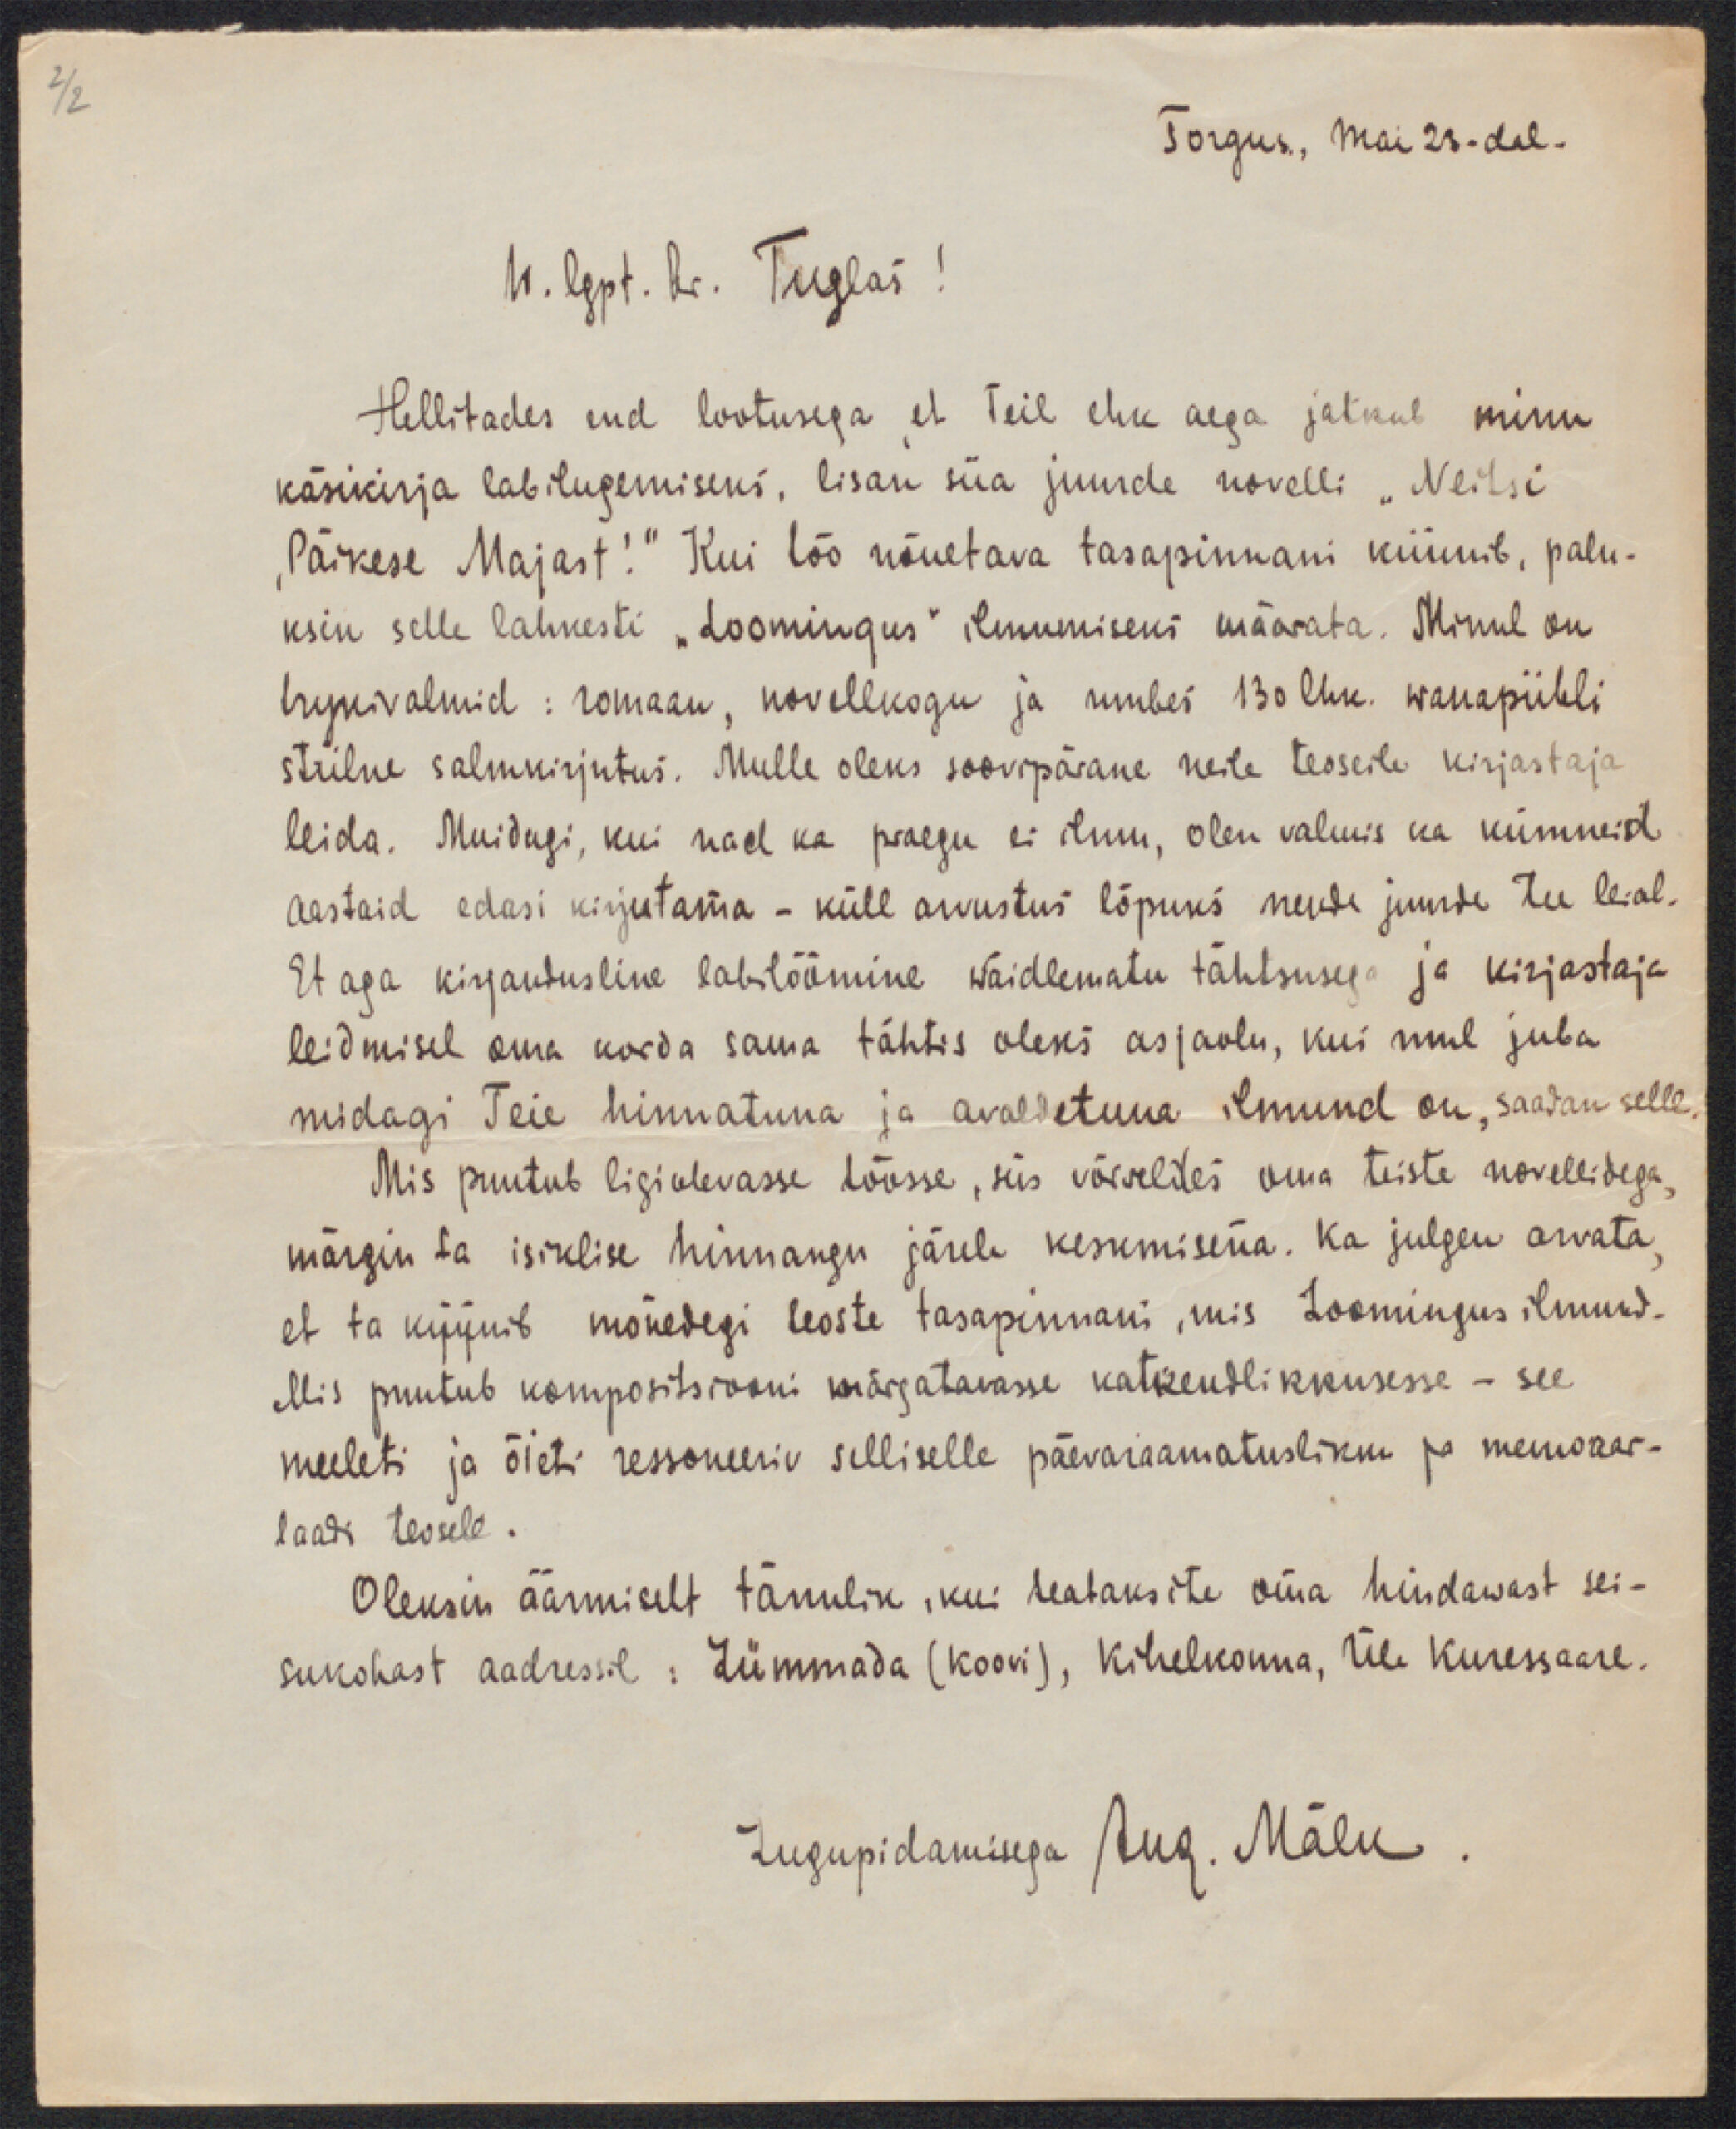 2/2
Torgus., Mai 23-dal-
W. lgpt. hr. Tuglas !
Hellitades end lootusega, et Teil ehk aega jatkub minu
käsikirja labilugemiseks, lisan siia juurde novelli „Neitsi
Päikese Majast!" Kui töö nõuetava tasapinnani küünib, palu-
ksin selle lahkesti „Loomingus" ilmumiseks määrata. Minul on
trykivalmid : romaan, novellkogu ja umbes 130 lhk. wanapiibli
stiilne salmkirjutus. Mulle oleks soovipärane neile teoseile kirjastaja
leida. Muidugi, kui nad ka praegu ei ilmu, olen valmis ka kümneid
aastaid edasi kirjutama - küll arvustus lõpuks nende juurde tee leiab.
Et aga kirjandusline labilöömine waidlematu tähtsusega ja kirjastaja
leidmisel oma korda sama tähtis oleks asjaolu, kui mul juba
midagi Teie hinnatuna ja avaldetuna ilmund on, saadan selle.
Mis puutub ligiolevasse töösse, siis võrreldes oma teiste novellidega,
märgin ta isiklise hinnangu järele keskmisena. Ka julgen arvata,
et ta kyynib mõnedegi teoste tasapinnani, mis Loomingus ilmund.
Mis puutub kompositsiooni märgatavasse katkendlikkusesse - see
meeleti ja õieti ressoneeriv selliselle päevaraamatuslikku ja memoaar-
laadi teosele.
Oleksin äärmiselt tänulik, kui teataksite oma hindawast sei-
sukohast aadressil : Lümmada (Koovi), Kihelkonna, Üle Kuressaare.
Lugupidamisega Aug. Mälk.